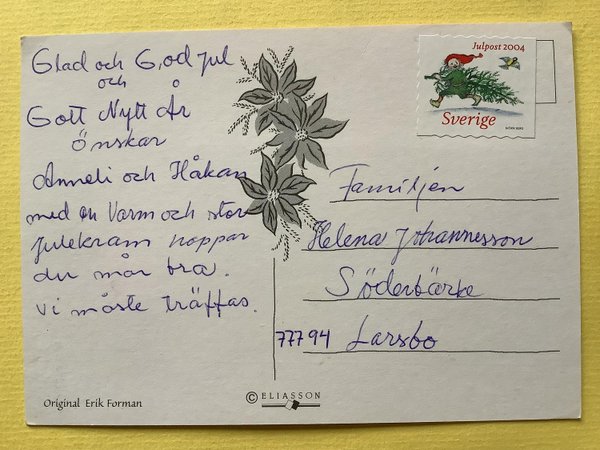 Glad och God jul
och
Gott Nytt År
önskar
Anneli och Håkan
med en Varm och stor
julekram hoppar
du mår bra.
Vi måste träffas.
Original Erik Forman
© ELIASSON
Julpost 2004
Sverige
Familjen
Helena Johannesson
Söderbärke
777 94 Larsbo